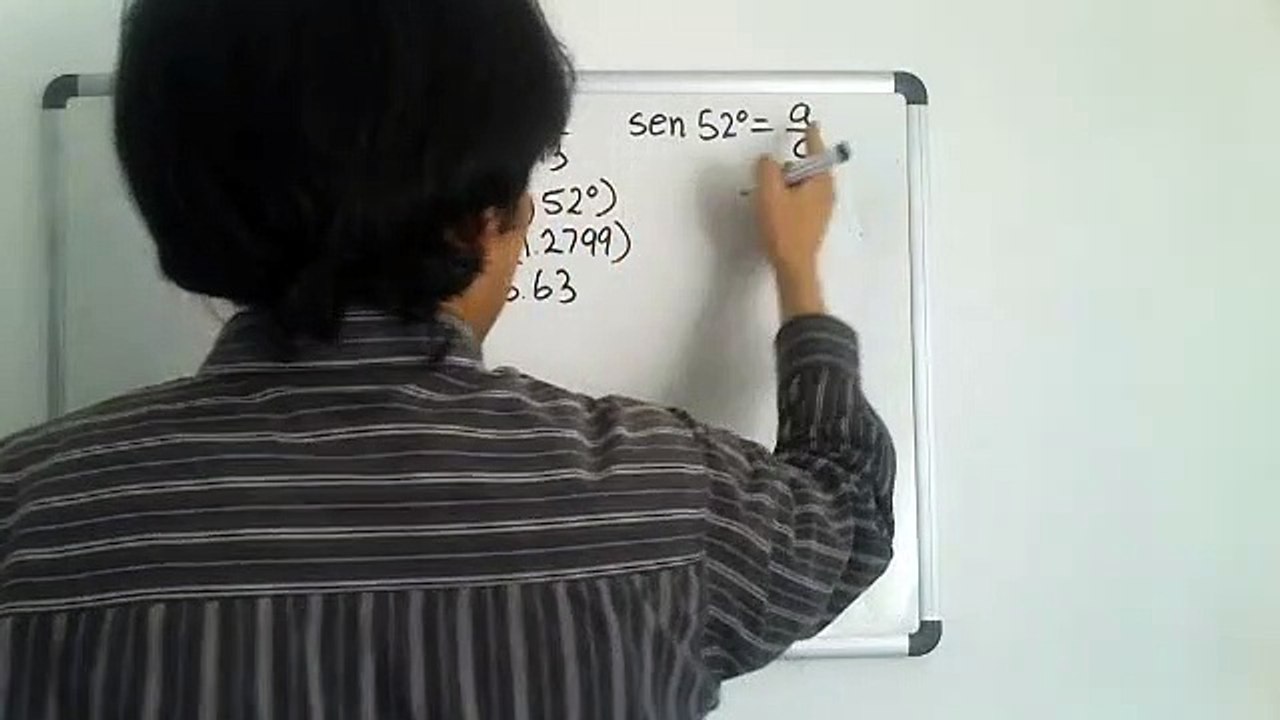 sen 52° = a/c
3
52°)
1.2799)
6.63